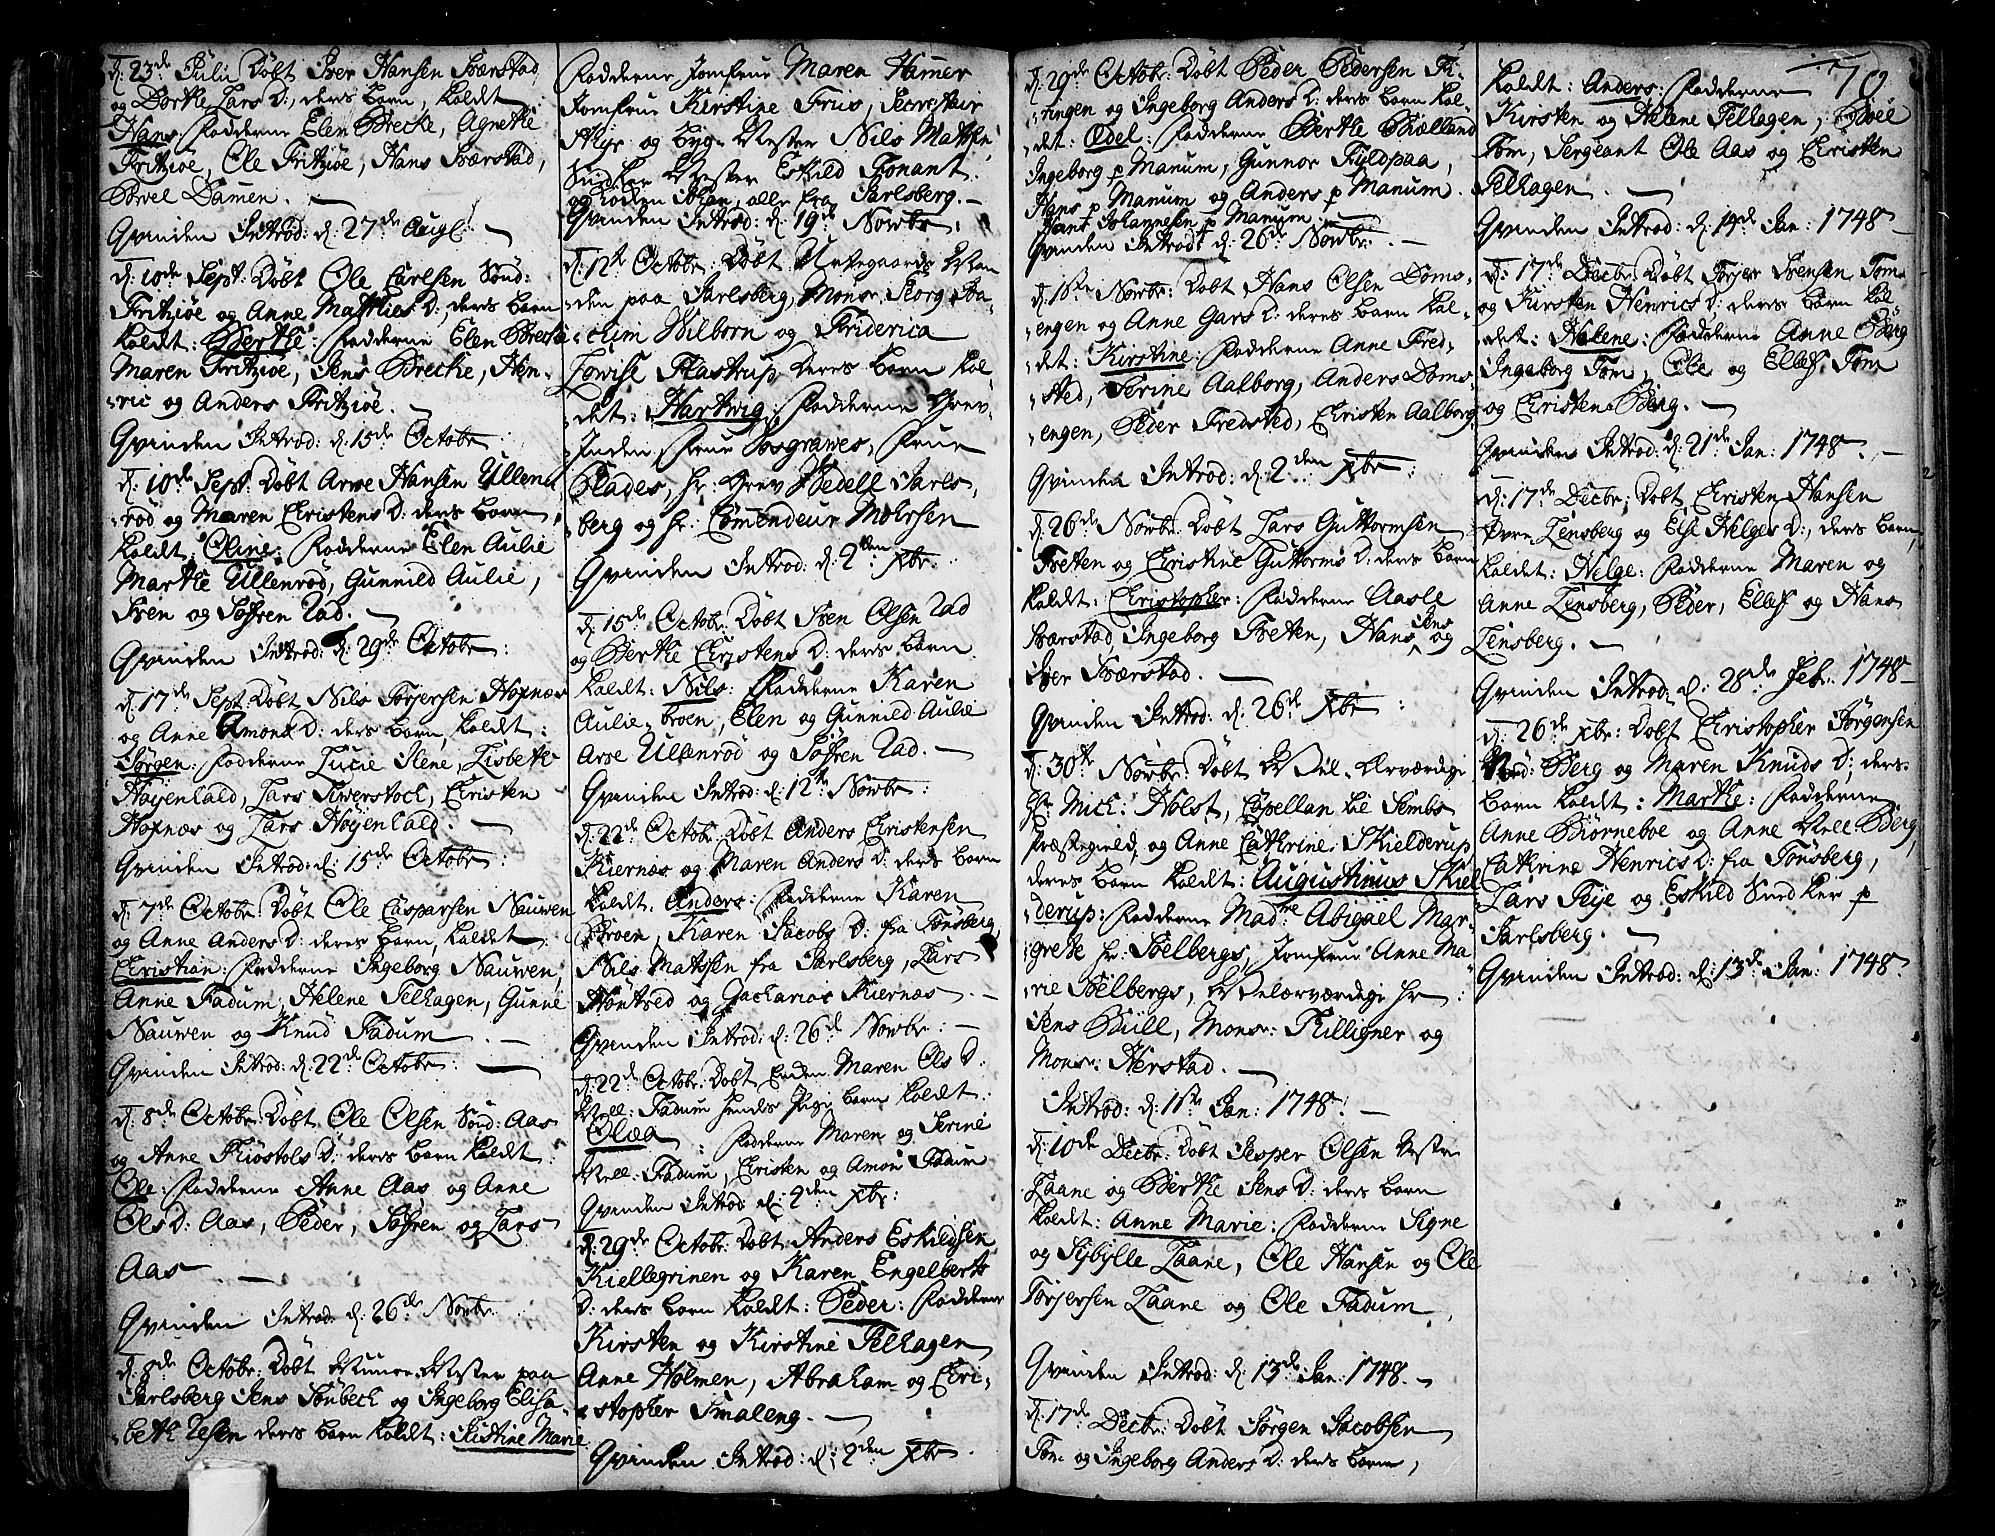 d: 23de Julii Döbt Iver Hansen Bærstad
og Dorthe Lars D:, deres barn, kaldt
Hans: Fadderne Elen Brecke, Agnethe
Fritzöe, Ole Fritzöe, Hans Bærstad,
Bovel Damen. —
Qvinden Introd: d: 27de Augl. —
d: 10de Sept: Döbt Ole Carlsen Sönd:
Fritzöe og Anne Mathies D:, deres barn
kaldt: Berthe: Fadderne Elen Brecke
Maren Fritzöe, Jens Brecke, Hen-
ric og Anders Fritzöe. —
Qvinden Introd: d: 15de Octobr:
d: 10de Sept: Döbt Arve Hansen Ullen-
röd og Maren Christens D: deres barn,
kaldt: Oline: Fadderne Elen Aulie
Marthe Ullenröd, Gunnild Aulie,
Sven og Söfren Rad. —
Qvinden Introd: d: 29de Octobr:
d: 17de Sept: Döbt Nils Torjersen Hopnæs
og Anne Amonds D: deres barn, kaldt:
Jörgen: Fadderne Lucie Ilene, Lisbeth
Höyenhald, Lars Tiverstoch, Christen
Hopnæs og Lars Höyenhald. —
Qvinden Introd: d: 15de Octobr:
d: 7de Octobr: Döbt Ole Casparsen Nauwen
og Anne Anders D: deres barn, kaldt
Christian: Fadderne Ingeborg Nauwen,
Anne Fadum, Helene Telhagen, Gunne
Nauwen og Knud Fadum —
Qvinden Introd: d: 22de Octobr: —
d: 8de Octobr: Döbt Ole Olsen Sönd: Aas
og Anne Tiöstols D: deres barn kaldt:
Ole: Fadderne Anne Aas og Anne
Ols D: Aas, Peder, Söfren og Lars
Aas —
Qvinden Introd: d: 26de Novbr:
d: 8de Octobr: Döbt Mester paa
Jarlsberg Jens Tönbech og Ingeborg Elisa-
beth deres barn kaldt: Kistine Marie
Fadderne Jomfrue Maren Hammer
Jomfrue Kirstine Friis, Secretair
og byg- Mester Nils Matsen,
Snidker Mester Eskild
og Johan, alle fra Jarlsberg. —
Qvinden Introd: d: 19de Novbr:
d: 12te Octobr: Döbt
paa Jarlsberg, Monsr. Georg Joa-
chim Wilborn og Friderica
Lovise Flastrup deres barn kal-
det: Hartwig: Fadderne Grev-
Inden, Frue, Frue
Blades, hr: Grev Wedell Jarls-
berg og hr: Comendeur Mohrsen
Qvinden Introd: d: 2den Xbr:
d: 15de Octobr: Döbt Sven Olsen Rad
og Berthe Christens D: deres barn
kaldt: Nils: Fadderne Karen
Aulie-broen, Elen og Gunnild Aulie
Arve Ullenröd og Söfren Rad. —
Qvinden Introd: d: 12te Novbr:
d: 22de Octobr: Döbt Anders Christensen
Kiernæs og Maren Anders D: deres barn
kaldt: Anders: Fadderne Karen
Broen, Karen Jacobs D: fra Tönsberg
Nils Matssen fra Jarlsberg, Lars
Höntved og Zacharias Kiernæs. —
Qvinden Introd: d: 26de Novbr: —
d: 22de Octobr: Döbt Enken Maren Ols D:
Mell: Fadum hendes Pige barn kaldt:
Olea: Fadderne Maren og Serine
Mell: Fadum, Christen og Amon Fadum
Qvinden Introd: d: 2den Xbr:
d: 29de Octobr: Döbt Anders Eskildsen
Kiellegrinen og Karen Engelberts
D: deres barn kaldt: Peder: Fadderne
Kirsten og Kirstine Telhagen,
Anne Holmen, Abraham og Chri-
stopher Smaleng. —
Qvinden Introd: d: 2den Xbr.
d: 29de Octobr: Döbt Peder Pedersen Fi-
ringen og Ingeborg Anders D: deres barn kal-
det: Edel: Fadderne Berthe Biælland
Ingeborg p Manum, Gunnor Fyldpaa,
Hans p Manum og Anders p Manum.
Johannesen p Manum. —
Qvinden Introd: d: 26de Novbr: —
d: 16de Novbr: Döbt Hans Olsen Doms-
engen og Anne Gars D: deres barn kal-
det: Kirstine: Fadderne Anne Fred-
sted, Serine Aalborg, Anders Doms-
engen, Peder Fredsted, Christen Aalborg
Qvinden Introd: d: 2den Xbr:
d: 26de Novbr: Döbt Lars Guttormsen
Tveten og Christine Guttorms D: deres barn
kaldt: Christopher: Fadderne Aasle
Bærstad, Ingeborg Tveten, Hans, Jens og
Iver Bærstad. —
Qvinden Introd: d: 26de Xbr:
d: 30te Novbr: Döbt Vel- Ærværdige
Hr: Mich: Holst, Capellan til Sembs
Præstegield, og Anne Cathrine Skielderup
deres barn kaldt: Augustinus Skiel-
derup: Fadderne Madme Abigael Mar-
grethe hr: Bölbergs, Jomfrue Anne Ma-
rie Bölbergs, Velærværdige hr:
Jens Büll, Monsr: Fulligner og
Monsr: Herstad. —
Introd: d: 11te Jan: 1748. —
d: 10de Decbr: Döbt Jesper Olsen Vestre
Laane og Berthe Jens D: deres barn
kaldt: Anne Marie: Fadderne Signe
og Sybylle Laane, Ole Hansen og Ole
Torjersen Laane og Ole Fadum,
Qvinden Introd: d: 13de Jan: 1748. —
d: 17de Decbr: Döbt Jörgen Jacobsen
Tom- og Ingeborg Anders D: deres barn,
70
kaldt: Anders: Fadderne
Kirsten og Helene Telhagen, Povel
Tom, Sergeant Ole Aas og Christen
Telhagen. —
Qvinden Introd: d: 14de Jan: 1748 —
d: 17de Decbr: Döbt Torjer Svensen Tom-
og Kirsten Henrics D: deres barn kal-
det: Helene: Fadderne Anne Berg
Ingeborg Tom, Ole og Ellef Tom
og Christen Berg. —
Qvinden Introd: d: 21de Jan: 1748. —
d: 17de Decbr: Döbt Christen Hansen
Övre Lensberg og Else Helges D:, deres barn,
kaldt: Helge: Fadderne Maren og
Anne Lensberg, Peder, Ellef og Hans
Lensberg. —
Qvinden Introd: d: 28de Feb: 1748 —
d: 26de Xbr: Döbt Christopher Jörgensen
Nord: Berg og Maren Knuds D: deres
barn kaldt: Marthe: Fadderne
Anne Biörneboe og Anne Mell: Berg,
Cathrine Henrics D: fra Tönsberg,
Lars Teije og Eskild Snedker p
Jarlsberg. —
Qvinden Introd: d: 13de Jan: 1748.